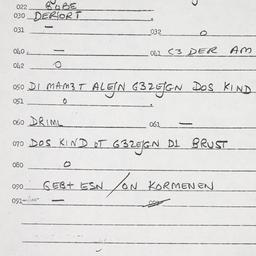 022 BOBE
030 DERIORT
031 — 032 O
060 — 061 C3 DER AM
062 O
050 DI MAM3T ALEJN G3ZEJGN DOS KIND
051 O
060 DRIML 061 —
070 DOS KIND OT G3ZEJGN DI BRUST
080 O
090 GEBT ESN / ON KORMENEN
092 —